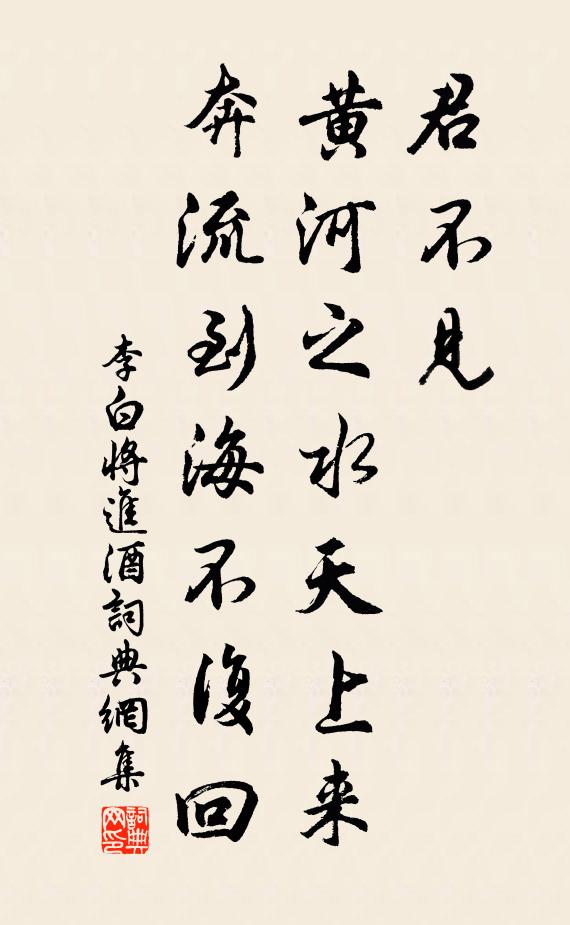 君不見
黃河之水天上来
奔流到海不復回
李白將進酒詞典網集
詞典网印